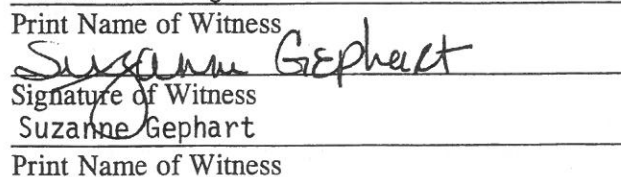 Print Name of Witness
Suzanne Gephart
Signature of Witness
Suzanne Gephart
Print Name of Witness